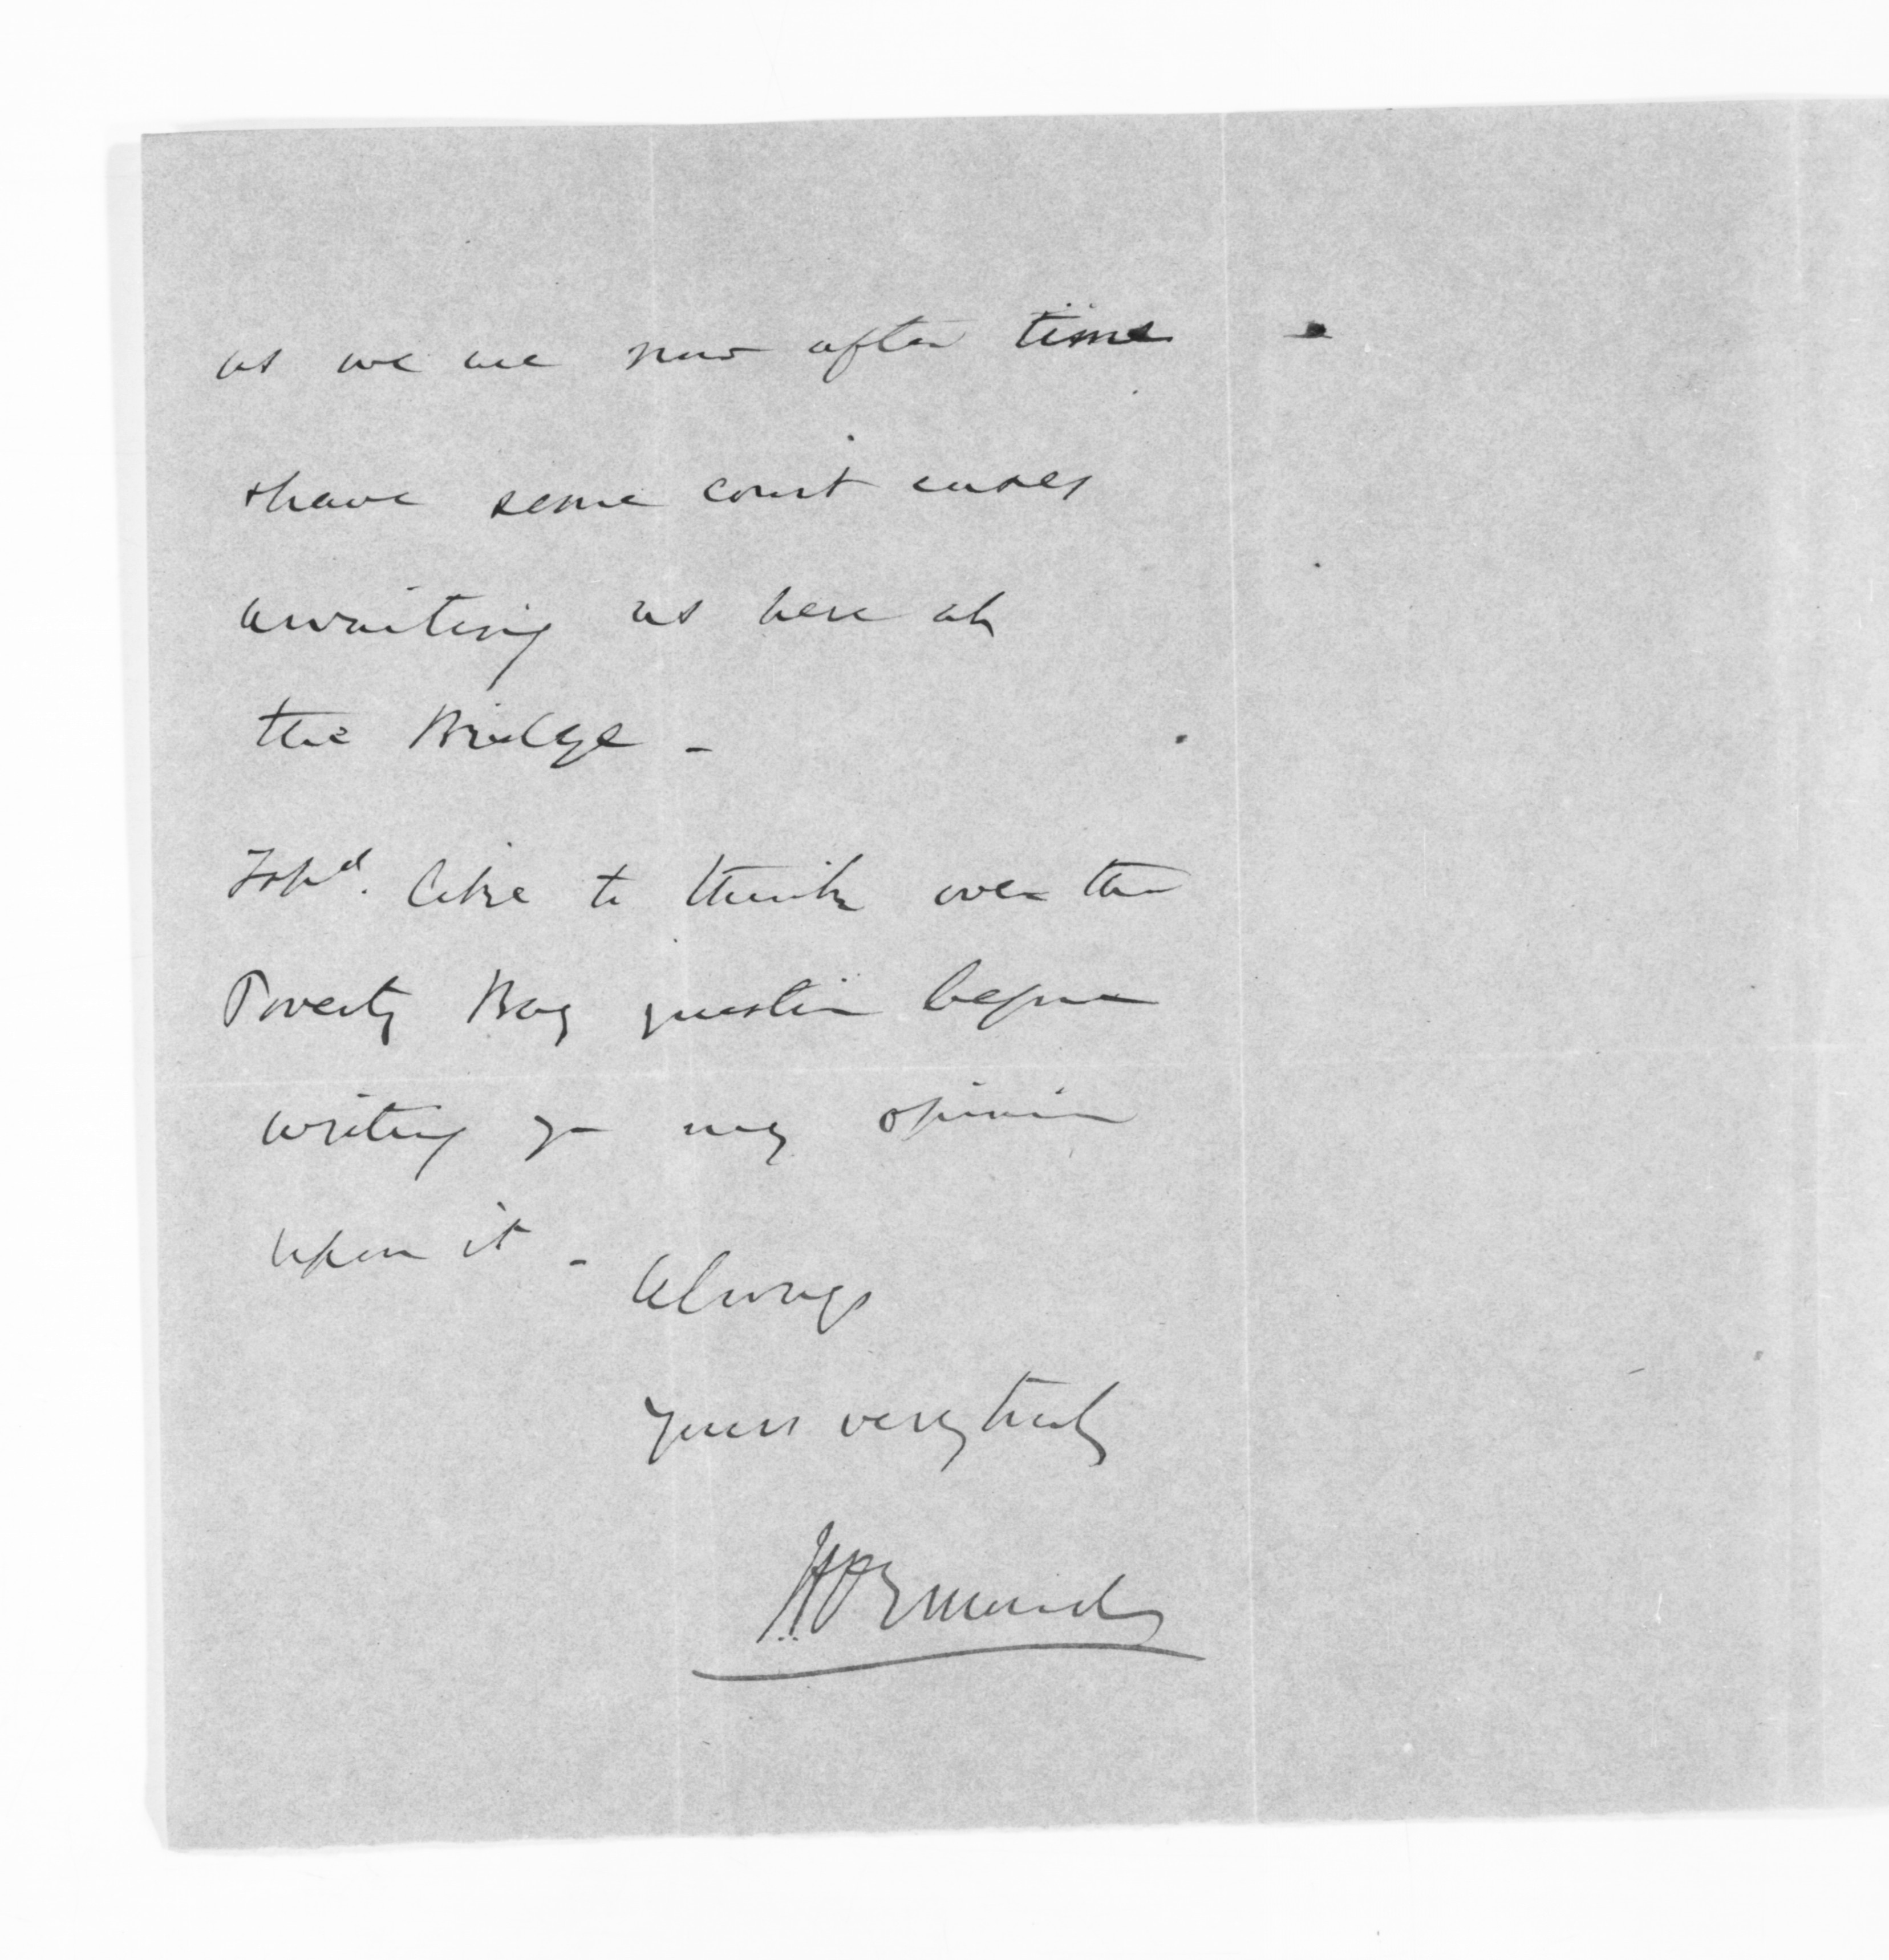 as we are now after time
& have some court cases
awaiting us here at
the Bridge -
I shd. like to think over the
Poverty Bay question before
writing you my opinion
upon it -
Always
yours very truly